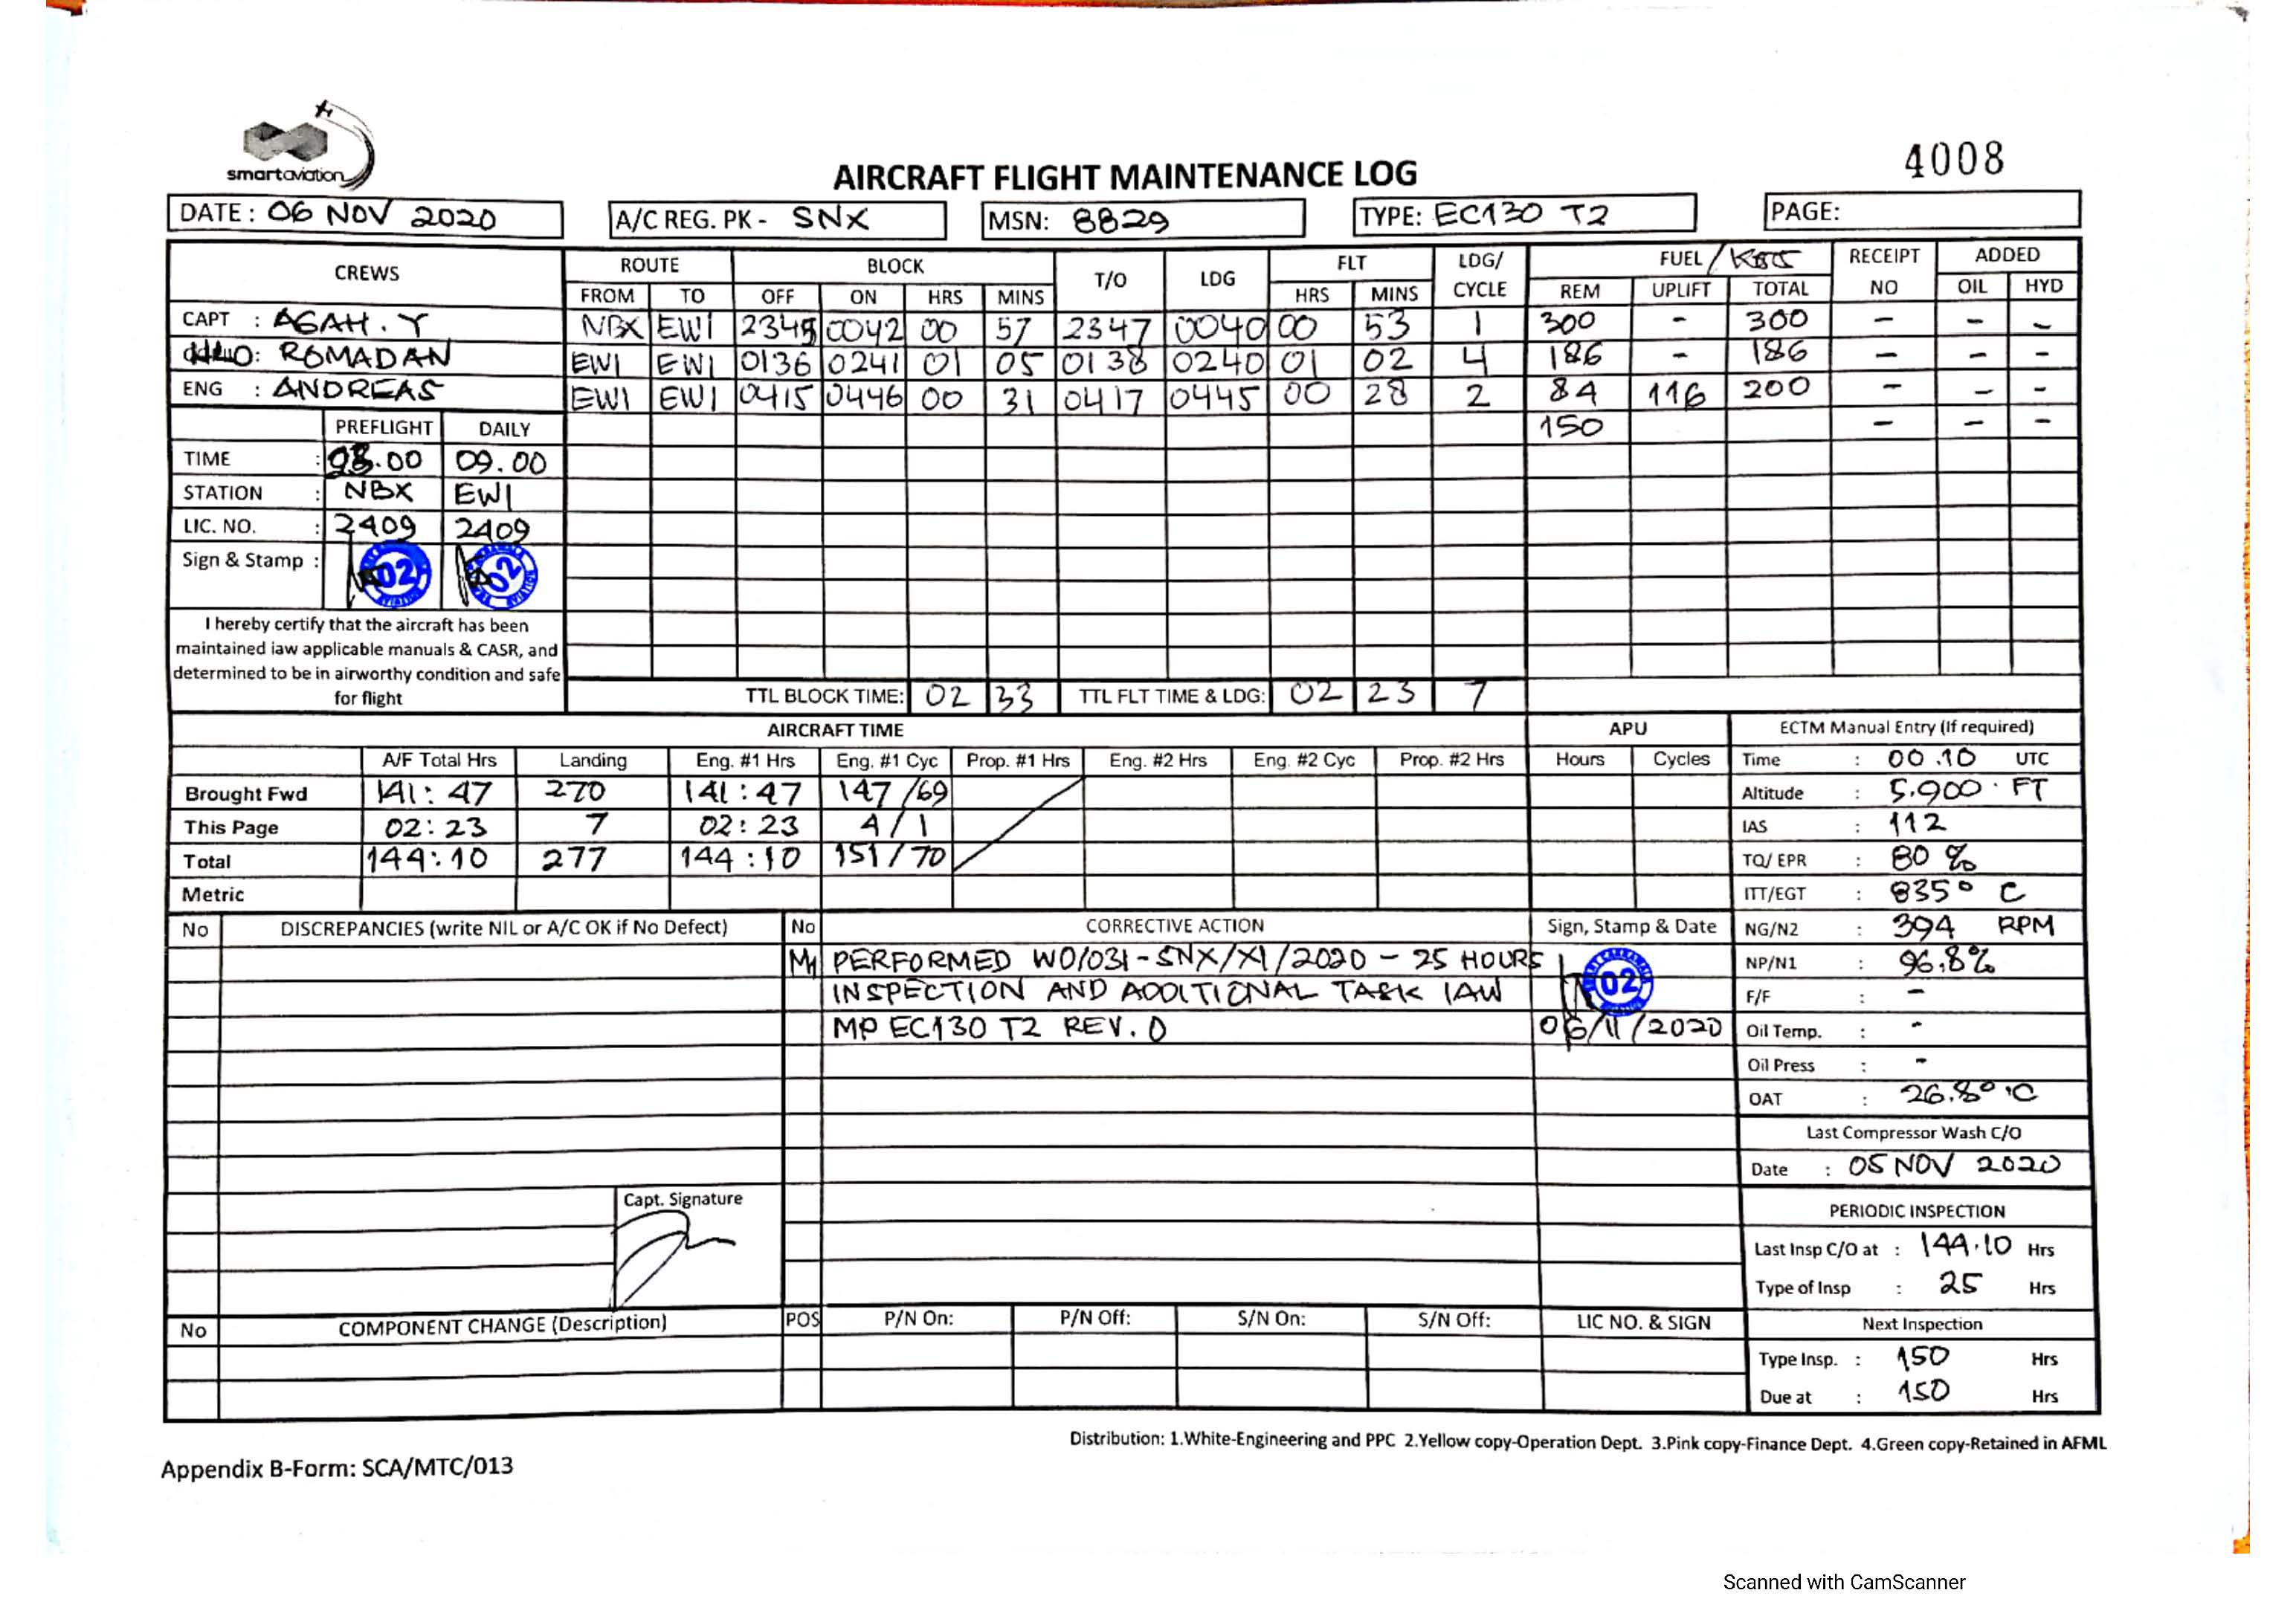 smartaviation
AIRCRAFT FLIGHT MAINTENANCE LOG
4008
DATE : 06 NOV 2020 A/C REG. PK - SNX MSN: 8829 TYPE: EC130 T2 PAGE:
CREWS ROUTE BLOCK T/O LDG FLT LDG/ CYCLE FUEL / RECEIPT NO ADDED
FROM TO OFF ON HRS MINS HRS MINS REM UPLIFT TOTAL OIL HYD
CAPT : AGAH. Y NBX EWI 2345 0042 00 57 2347 0040 00 53 1 300 - 300 - - -
: ROMADAN EWI EWI 0136 0241 01 05 0138 0240 01 02 4 186 - 186 - - -
ENG : ANDREAS EWI EWI 0415 0446 00 31 0417 0445 00 28 2 84 116 200 - - -
PREFLIGHT DAILY 150 - - -
TIME : .00 09.00
STATION : NBX EWI
LIC. NO. : 2409 2409
Sign & Stamp : 02 02
I hereby certify that the aircraft has been
maintained iaw applicable manuals & CASR, and
determined to be in airworthy condition and safe
for flight
TTL BLOCK TIME: 02 33 TTL FLT TIME & LDG: 02 23 7
AIRCRAFT TIME APU ECTM Manual Entry (If required)
A/F Total Hrs Landing Eng. #1 Hrs Eng. #1 Cyc Prop. #1 Hrs Eng. #2 Hrs Eng. #2 Cyc Prop. #2 Hrs Hours Cycles Time : 00.10 UTC
Brought Fwd 141:47 270 141:47 147/69 Altitude : 5.900 FT
This Page 02:23 7 02:23 4/1 IAS : 112
Total 144:10 277 144:10 151/70 TQ/ EPR : 80 %
Metric ITT/EGT : 835° C
No DISCREPANCIES (write NIL or A/C OK if No Defect) No CORRECTIVE ACTION Sign, Stamp & Date NG/N2 : 394 RPM
M1 PERFORMED WO/031-SNX/XI/2020 - 25 HOURS 02 NP/N1 : 96.8%
INSPECTION AND ADDITIONAL TASK IAW F/F : -
MP EC130 T2 REV. 0 06/11/2020 Oil Temp. : -
Oil Press : -
OAT : 26.8°C
Last Compressor Wash C/O
Date : 05 NOV 2020
Capt. Signature
PERIODIC INSPECTION
Last Insp C/O at : 144.10 Hrs
Type of Insp : 25 Hrs
No COMPONENT CHANGE (Description) POS P/N On: P/N Off: S/N On: S/N Off: LIC NO. & SIGN Next Inspection
Type Insp. : 150 Hrs
Due at : 150 Hrs
Distribution: 1.White-Engineering and PPC 2.Yellow copy-Operation Dept. 3.Pink copy-Finance Dept. 4.Green copy-Retained in AFML
Appendix B-Form: SCA/MTC/013
Scanned with CamScanner